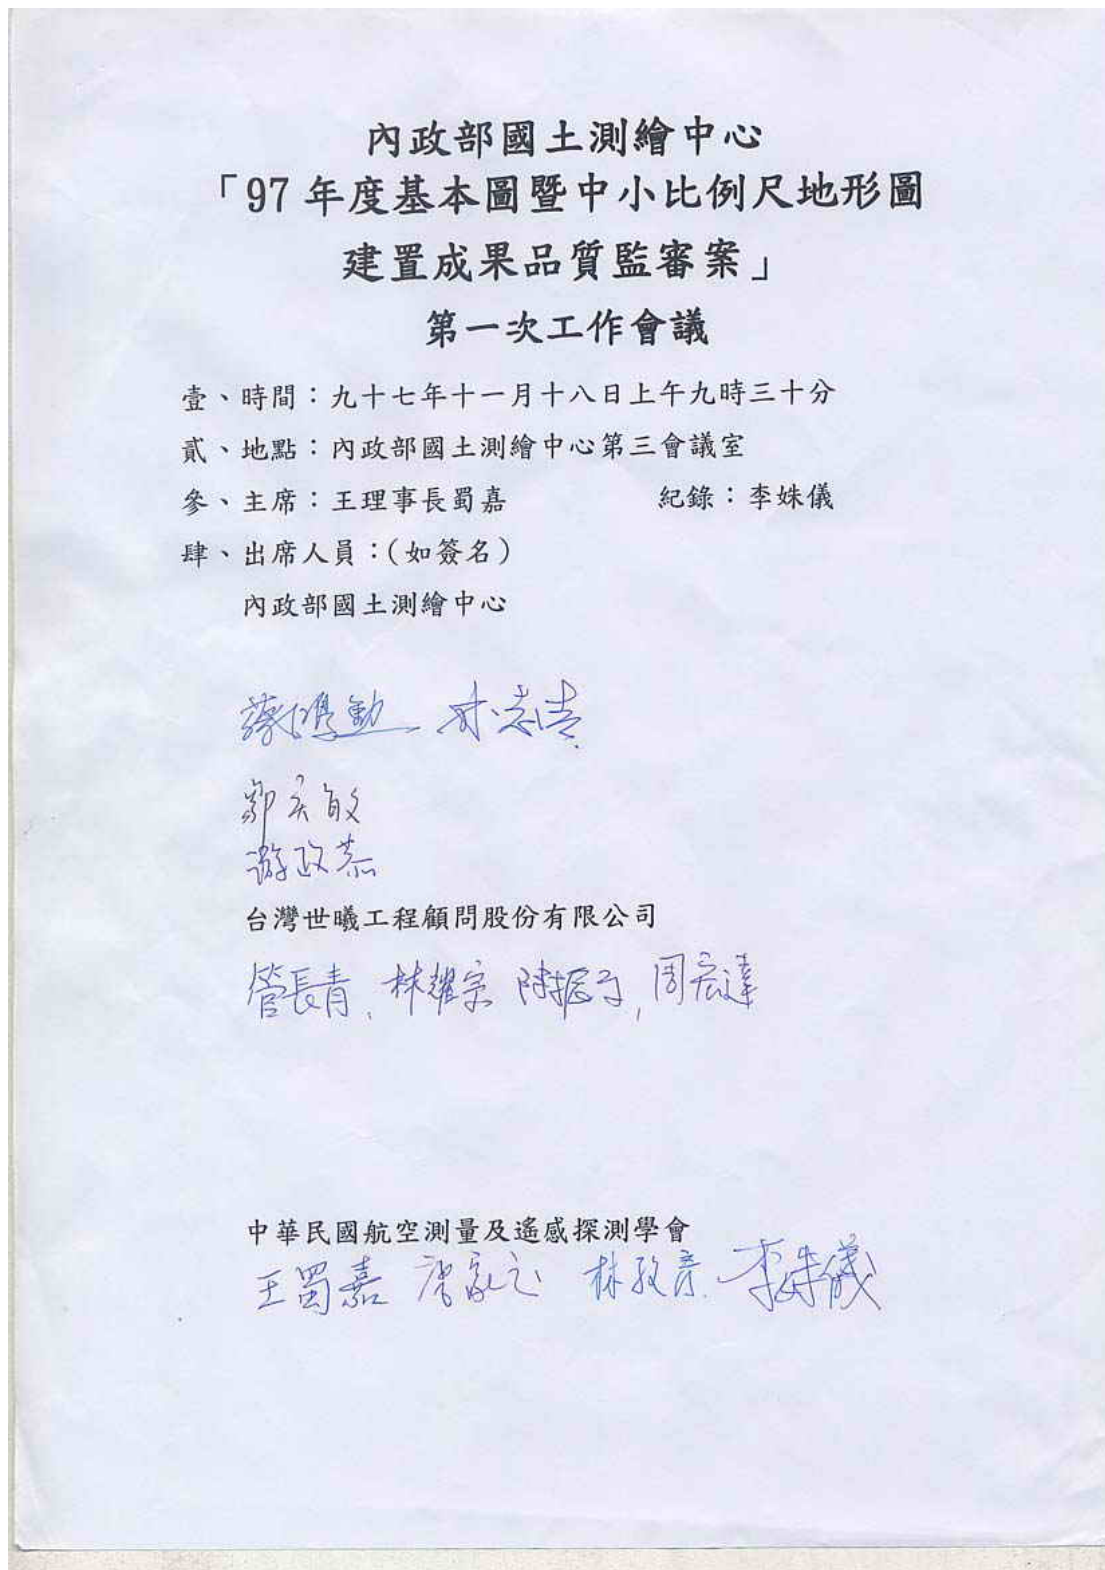 內政部國土測繪中心
「97 年度基本圖暨中小比例尺地形圖
建置成果品質監審案」
第一次工作會議
壹、時間：九十七年十一月十八日上午九時三十分
貳、地點：內政部國土測繪中心第三會議室
參、主席：王理事長蜀嘉 紀錄：李姝儀
肆、出席人員：(如簽名)
內政部國土測繪中心
林志清
游政恭
台灣世曦工程顧問股份有限公司
管長青、林耀宗 周宏達
中華民國航空測量及遙感探測學會
王蜀嘉 李姝儀